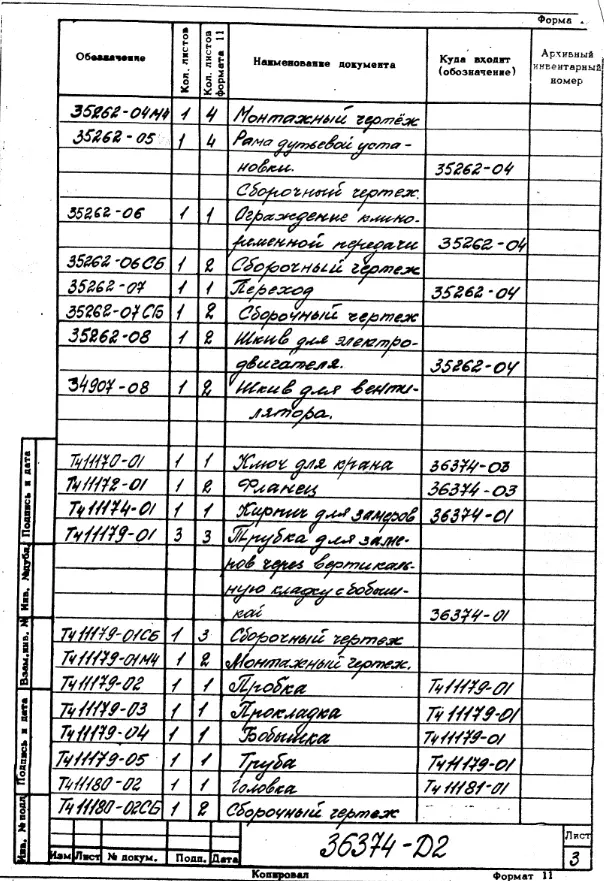 Форма
Обозначение Кол. листов Кол. листов формата 11 Наименование документа Куда входит (обозначение) Архивный инвентарный номер
35262-04МЧ 1 4 Монтажный чертёж
35262-05 1 4 Рама дутьевой уста-
новки. 35262-04
Сборочный чертеж.
35262-06 1 1 Ограждение клино-
ременной передачи 35262-04
35262-06СБ 1 2 Сборочный чертеж
35262-07 1 1 Переход 35262-04
35262-07СБ 1 2 Сборочный чертеж
35262-08 1 2 Шкив для электро-
двигателя. 35262-04
34907-08 1 2 Шкив для венти-
лятора.
Тч11170-01 1 1 Ключ для крана 36374-03
Тч11172-01 1 2 Фланец 36374-03
Тч11174-01 1 1 Кирпич для замеров 36374-01
Тч11179-01 3 3 Трубка для заме-
ров через вертикаль-
ную кладку с бобыш-
кой 36374-01
Тч11179-01СБ 1 3 Сборочный чертеж
Тч11179-01МЧ 1 2 Монтажный чертеж.
Тч11179-02 1 1 Пробка Тч11179-01
Тч11179-03 1 1 Прокладка Тч11179-01
Тч11179-04 1 1 Бобышка Тч11179-01
Тч11179-05 1 1 Труба Тч11179-01
Тч11180-02 1 1 Головка Тч11181-01
Тч11180-02СБ 1 2 Сборочный чертеж
Подпись и дата
Инв. №дубл.
Взам.инв. №
Подпись и дата
Инв. №подл
36374-Д2
Лист
3
Изм Лист № докум. Подп. Дата
Копировал Формат 11